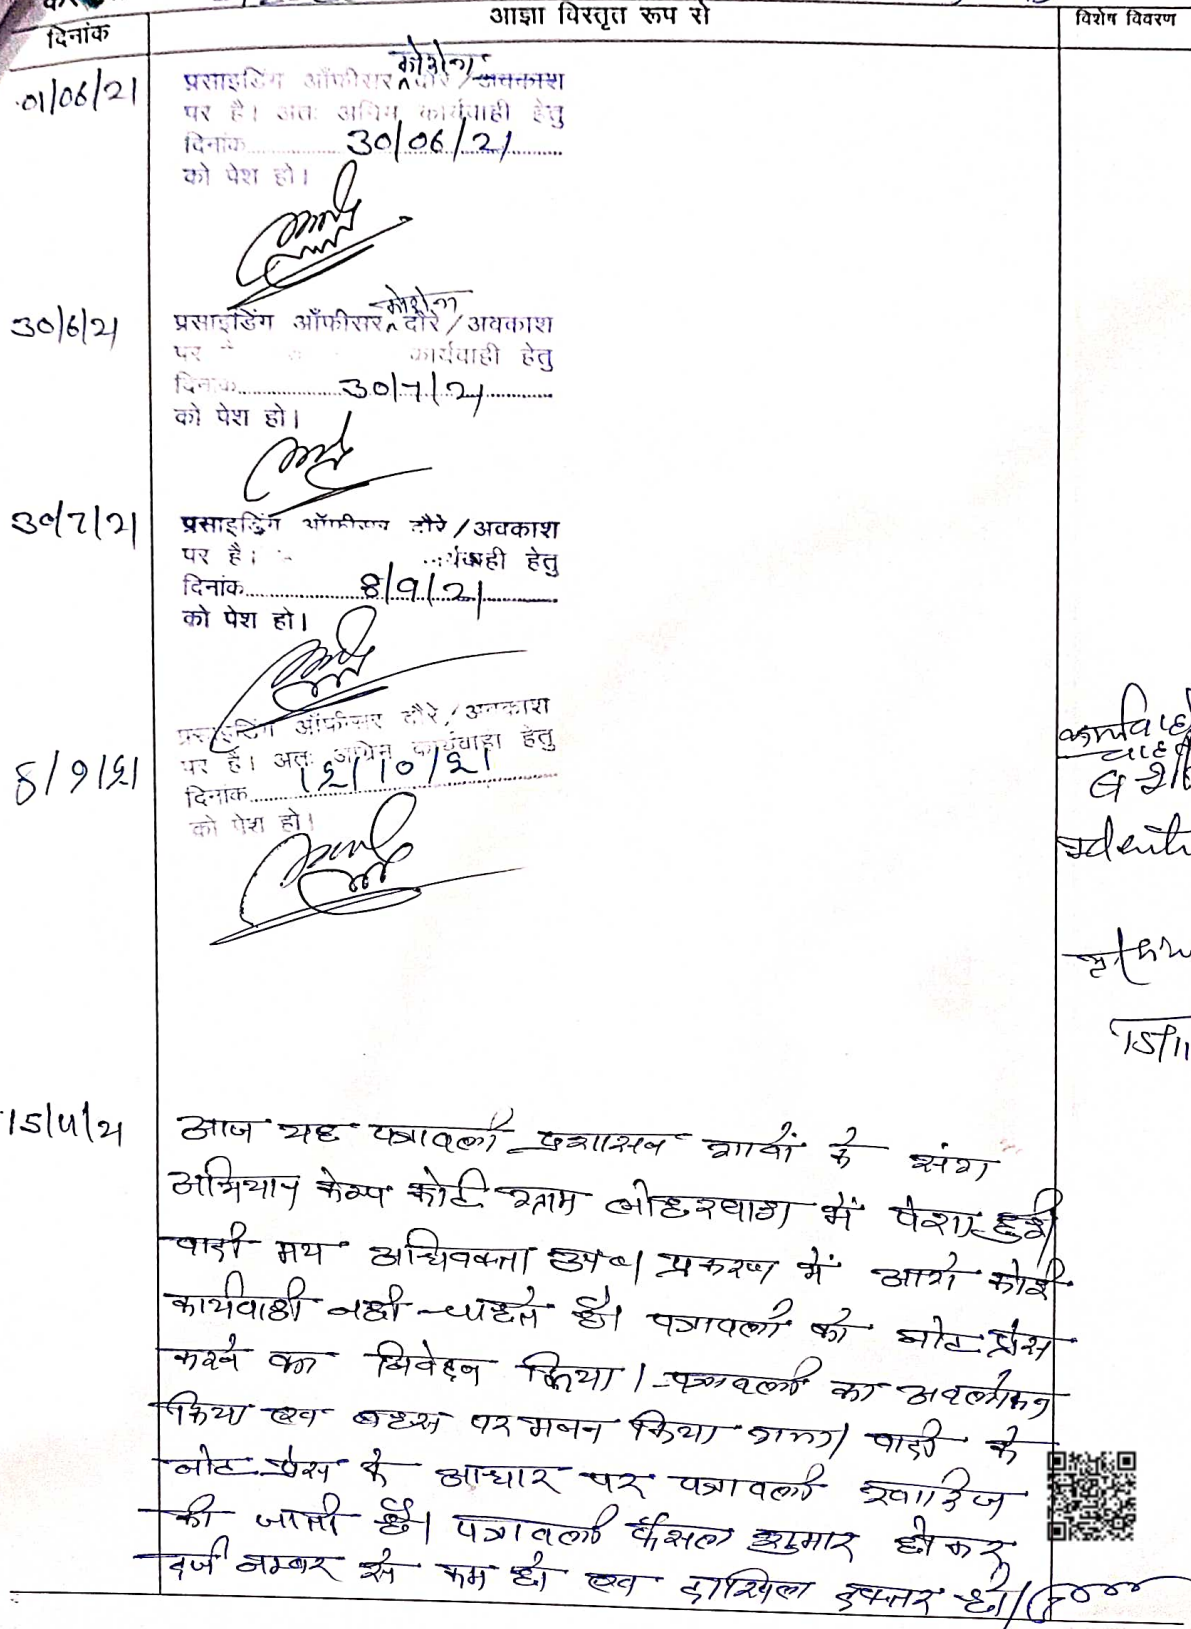 दिनांक
आज्ञा विस्तृत रूप से
विशेष विवरण
01/06/21
कोरोना
प्रसाइडिंग ऑफीसर ^ दौरे / अवकाश
पर है। अतः अग्रिम कार्यवाही हेतु
दिनांक 30/06/21
को पेश हो।
30/6/21
कोरोना
प्रसाइडिंग ऑफीसर ^ दौरे / अवकाश
पर कार्यवाही हेतु
दिनांक 30/7/21
को पेश हो।
30/7/21
प्रसाइडिंग ऑफीसर दौरे / अवकाश
पर है। हेतु
दिनांक 8/9/21
को पेश हो।
8/9/21
प्रसाइडिंग ऑफीसर दौरे / अवकाश
पर है। अतः अग्रिम कार्यवाही हेतु
दिनांक 12/10/21
को पेश हो।
15/11
15/11/21
आज यह पत्रावली प्रशासन गावों के संग
अभियान केम्प कोर्ट ग्राम लोहरवाडा में पेश हुई
वादी मय अधिवक्ता उप०। प्रकरण में आगे कोई
कार्यवाही नही चाहते है। पत्रावली को नोट प्रेस
करने का निवेदन किया। पत्रावली का अवलोकन
किया एवं बहस पर मनन किया गया। वादी के
नोट प्रेस के आधार पर पत्रावली खारिज
की जाती है। पत्रावली फैसल शुमार होकर
दर्ज नम्बर से कम हो एवं दाखिल दफ्तर हो।